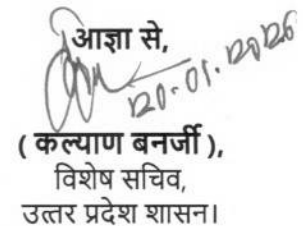 आज्ञा से,
20.01.2026
( कल्याण बनर्जी ),
विशेष सचिव,
उत्तर प्रदेश शासन।